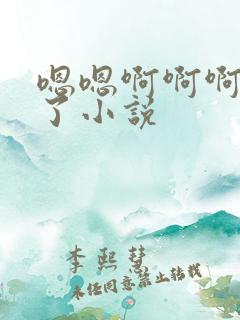 嗯嗯啊啊啊
了小说
李熙慧
未经同意禁止转载